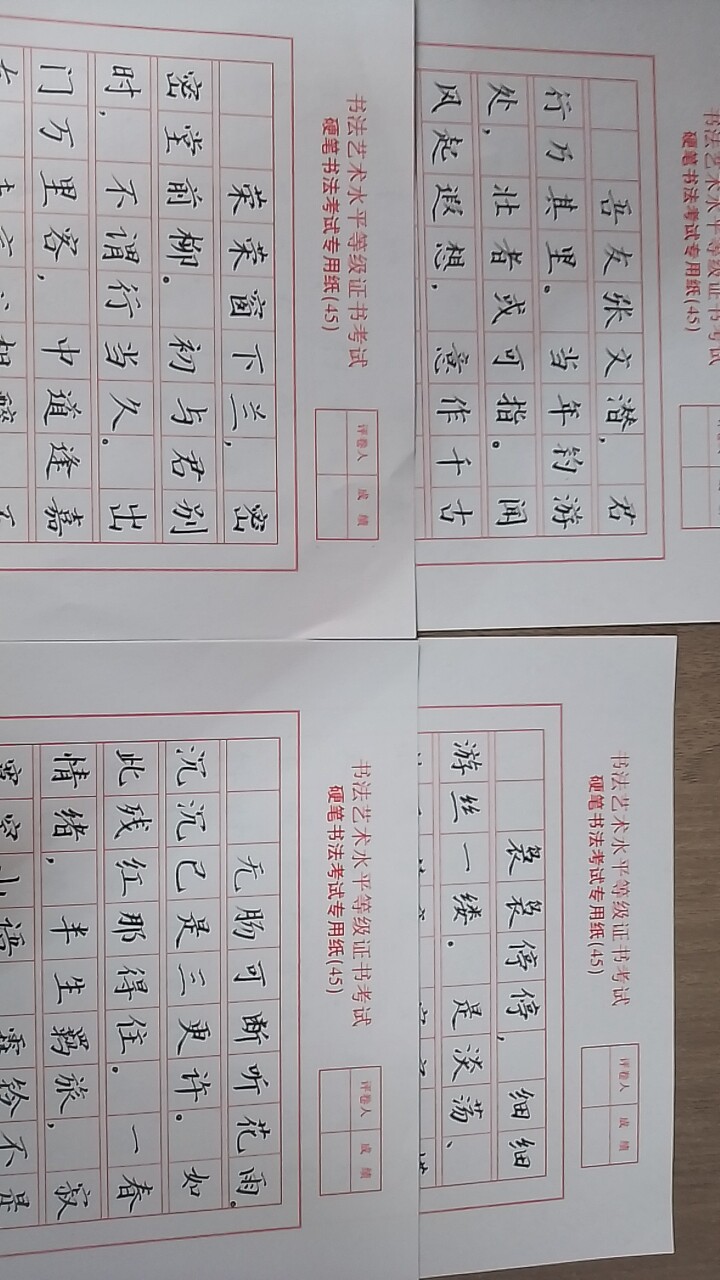 书法艺术水平等级证书考试
硬笔书法考试专用纸(45)
评卷人
成绩
荣荣窗下兰,密
密堂前柳。初与君别
时,不谓行当久。出
门万里客,中道逢嘉
书法艺术水平等级证书考试
硬笔书法考试专用纸(45)
吾友张文潜,君
行乃其里。当年钓游
处,壮者或可指。闻
风起遐想,意作千古
书法艺术水平等级证书考试
硬笔书法考试专用纸(45)
评卷人
成绩
无肠可断听花雨。
沉沉已是三更许。如
此残红那得住。一春
情绪,半生羁旅,寂
空山语霖铃不是
书法艺术水平等级证书考试
硬笔书法考试专用纸(45)
评卷人
成绩
袅袅停停,细细
游丝一缕。是淡荡、